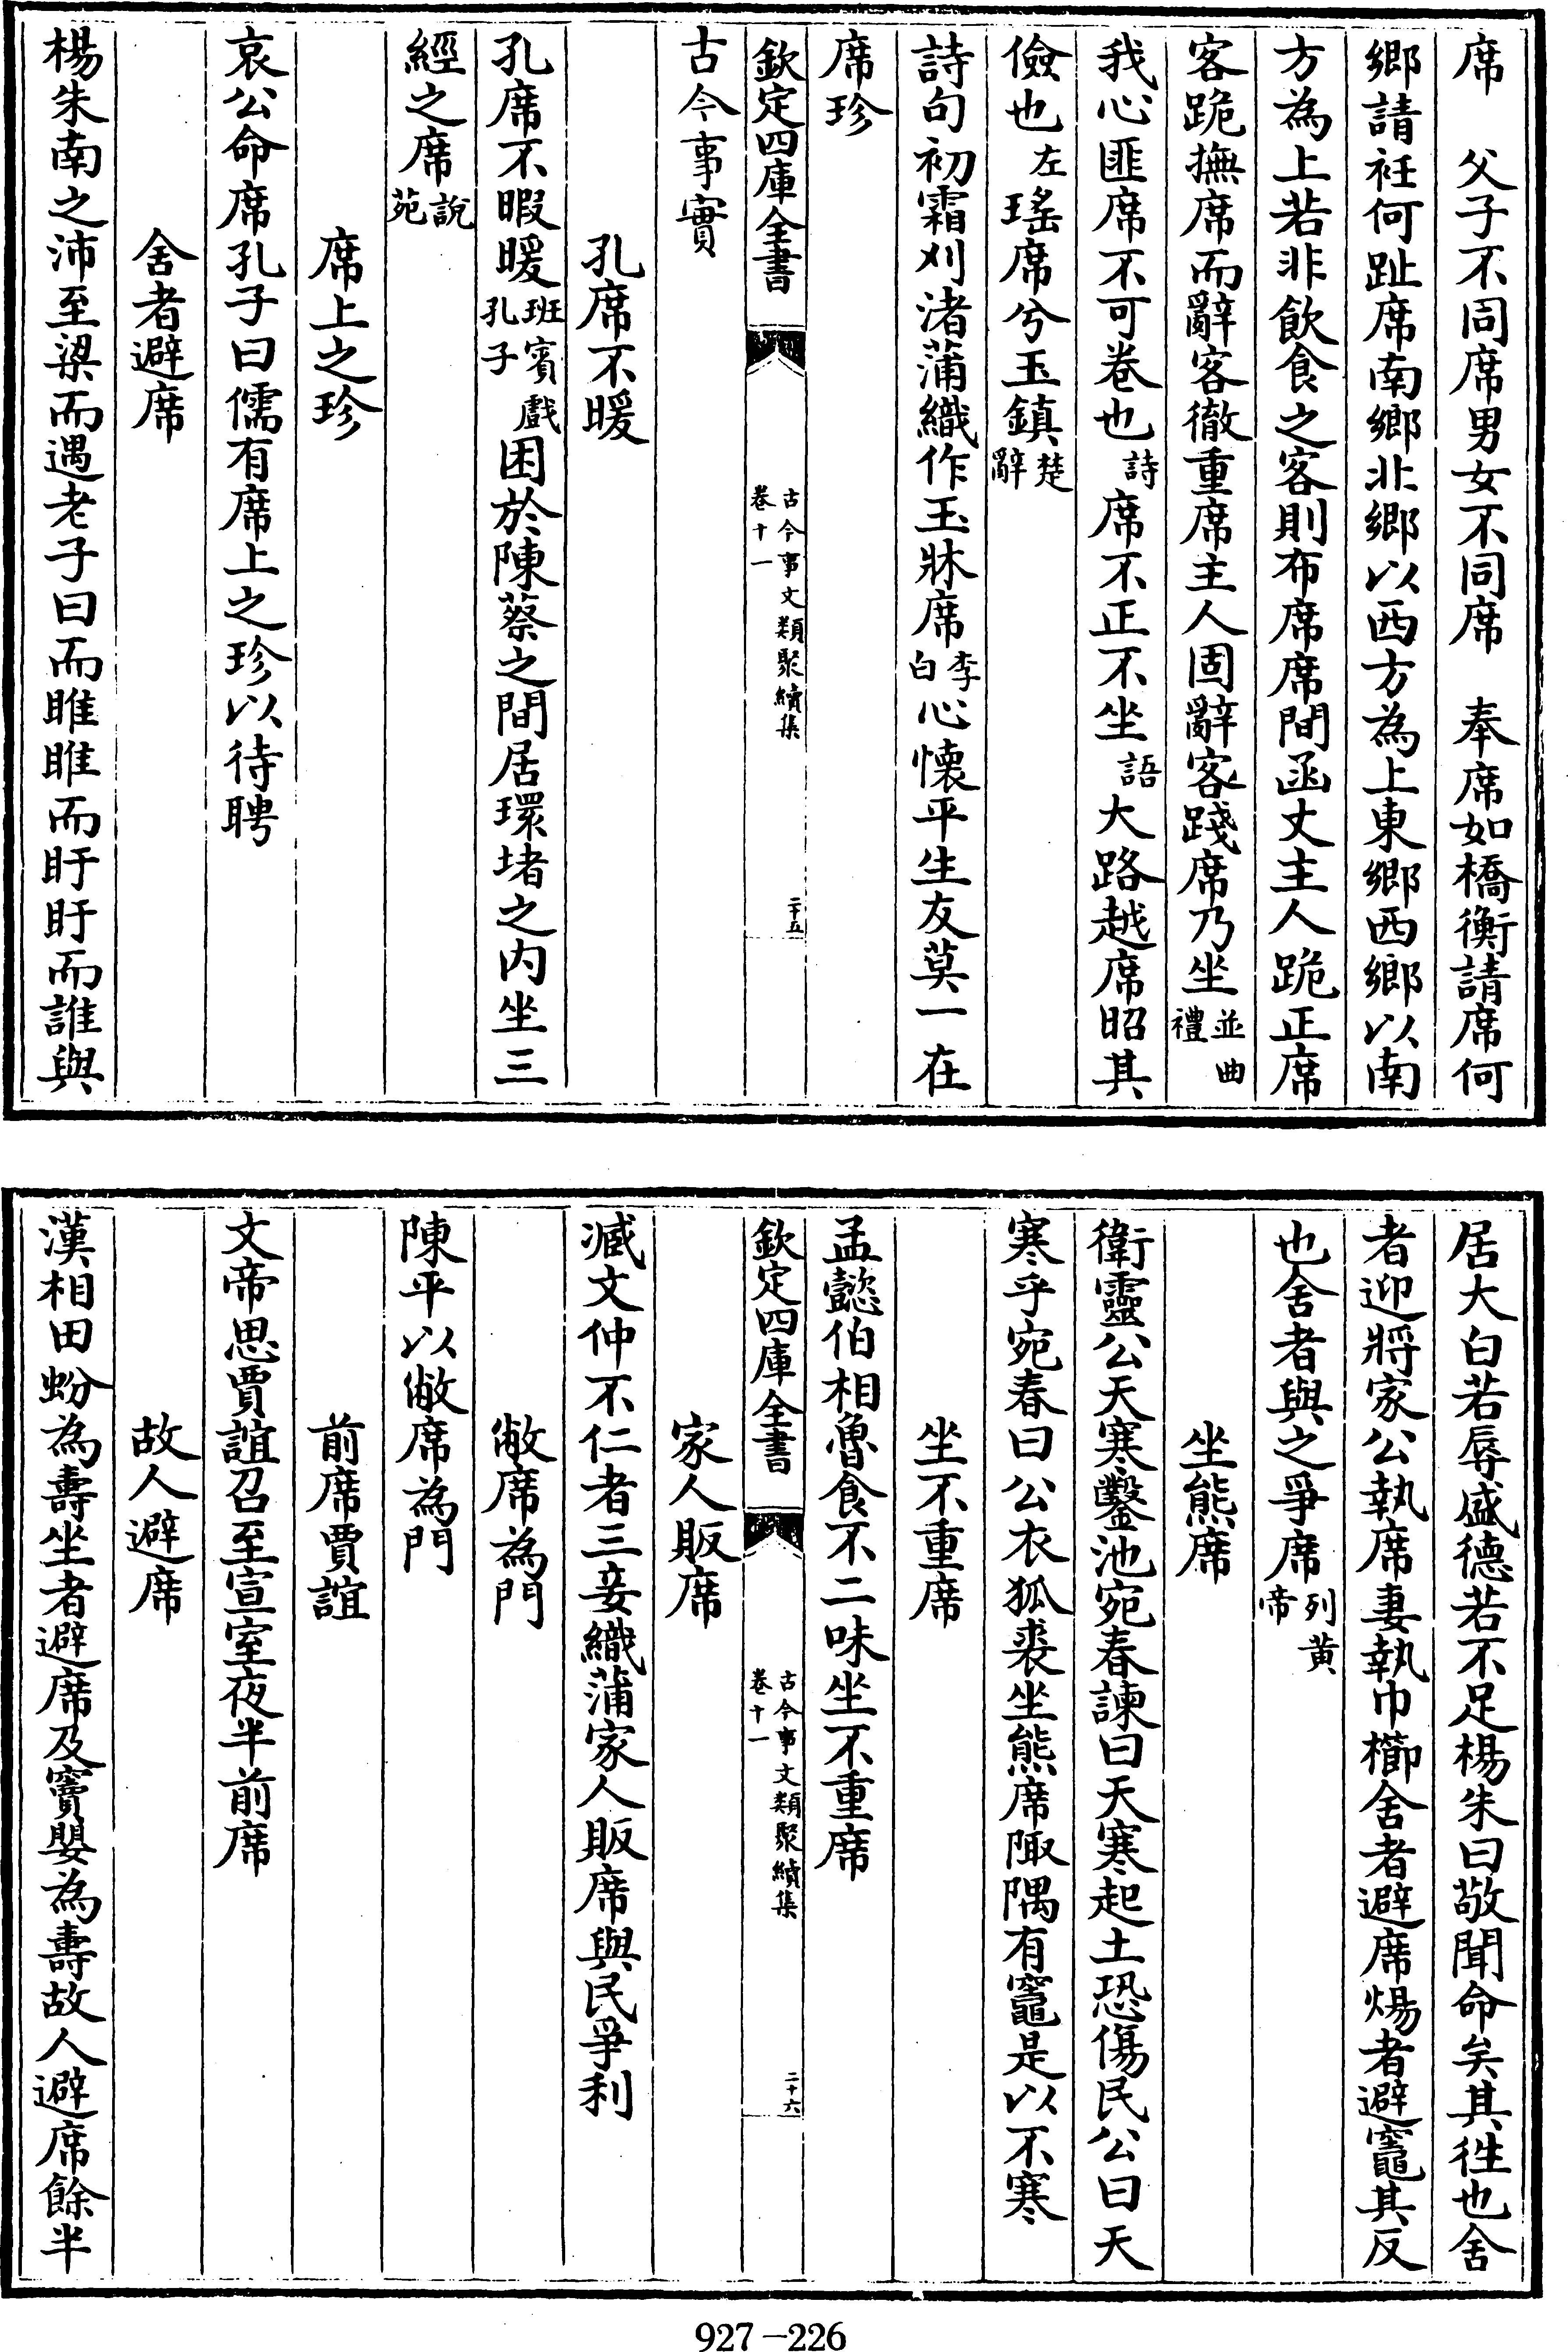 席　父子不同席男女不同席　奉席如橋衡請席何
鄉請衽何趾席南鄉北鄉以西方為上東鄉西鄉以南
方為上若非飲食之客則布席席間函丈主人跪正席
客跪撫席而辭客徹重席主人固辭客踐席乃坐並曲禮
我心匪席不可卷也詩席不正不坐語大路越席昭其
儉也左瑤席兮玉鎮楚辭
詩句初霜刈渚蒲織作玉牀席李白心懷平生友莫一在
席珍
欽定四庫全書　古今事文類聚續集　卷十一　二十五
古今事實
孔席不暖
孔席不暇暖班賓戲孔子困於陳蔡之間居環堵之内坐三
經之席說苑
席上之珍
哀公命席孔子曰儒有席上之珍以待聘
舍者避席
楊朱南之沛至梁而遇老子曰而睢睢而盱盱而誰與
居大白若辱盛德若不足楊朱曰敬聞命矣其徃也舍
者迎將家公執席妻執巾櫛舍者避席煬者避竈其反
也舍者與之爭席列黄帝
坐熊席
衛靈公天寒鑿池宛春諫曰天寒起土恐傷民公曰天
寒乎宛春曰公衣狐裘坐熊席陬隅有竈是以不寒
坐不重席
孟懿伯相魯食不二味坐不重席
欽定四庫全書　古今事文類聚續集　卷十一　二十六
家人販席
臧文仲不仁者三妾織蒲家人販席與民爭利
敝席為門
陳平以敝席為門
前席賈誼
文帝思賈誼召至宣室夜半前席
故人避席
漢相田蚡為壽坐者避席及竇嬰為壽故人避席餘半
927-226